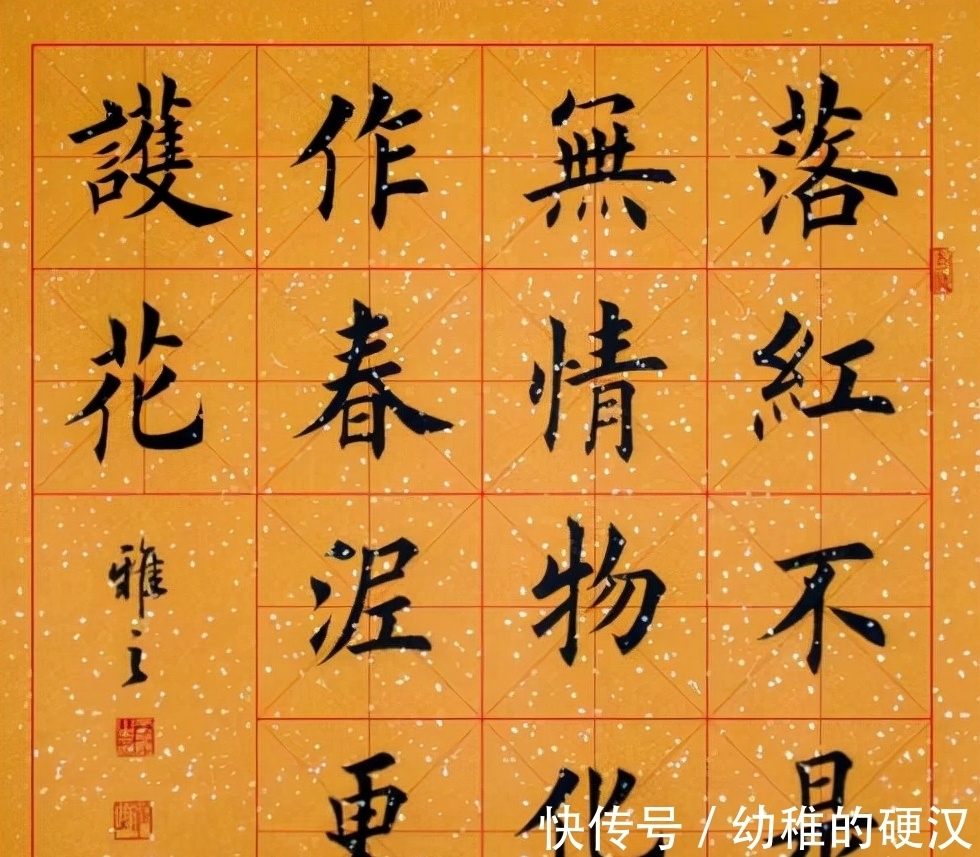 落紅不是
無情物化
作春泥更
護花
雅之
快传号 / 幼稚的硬汉